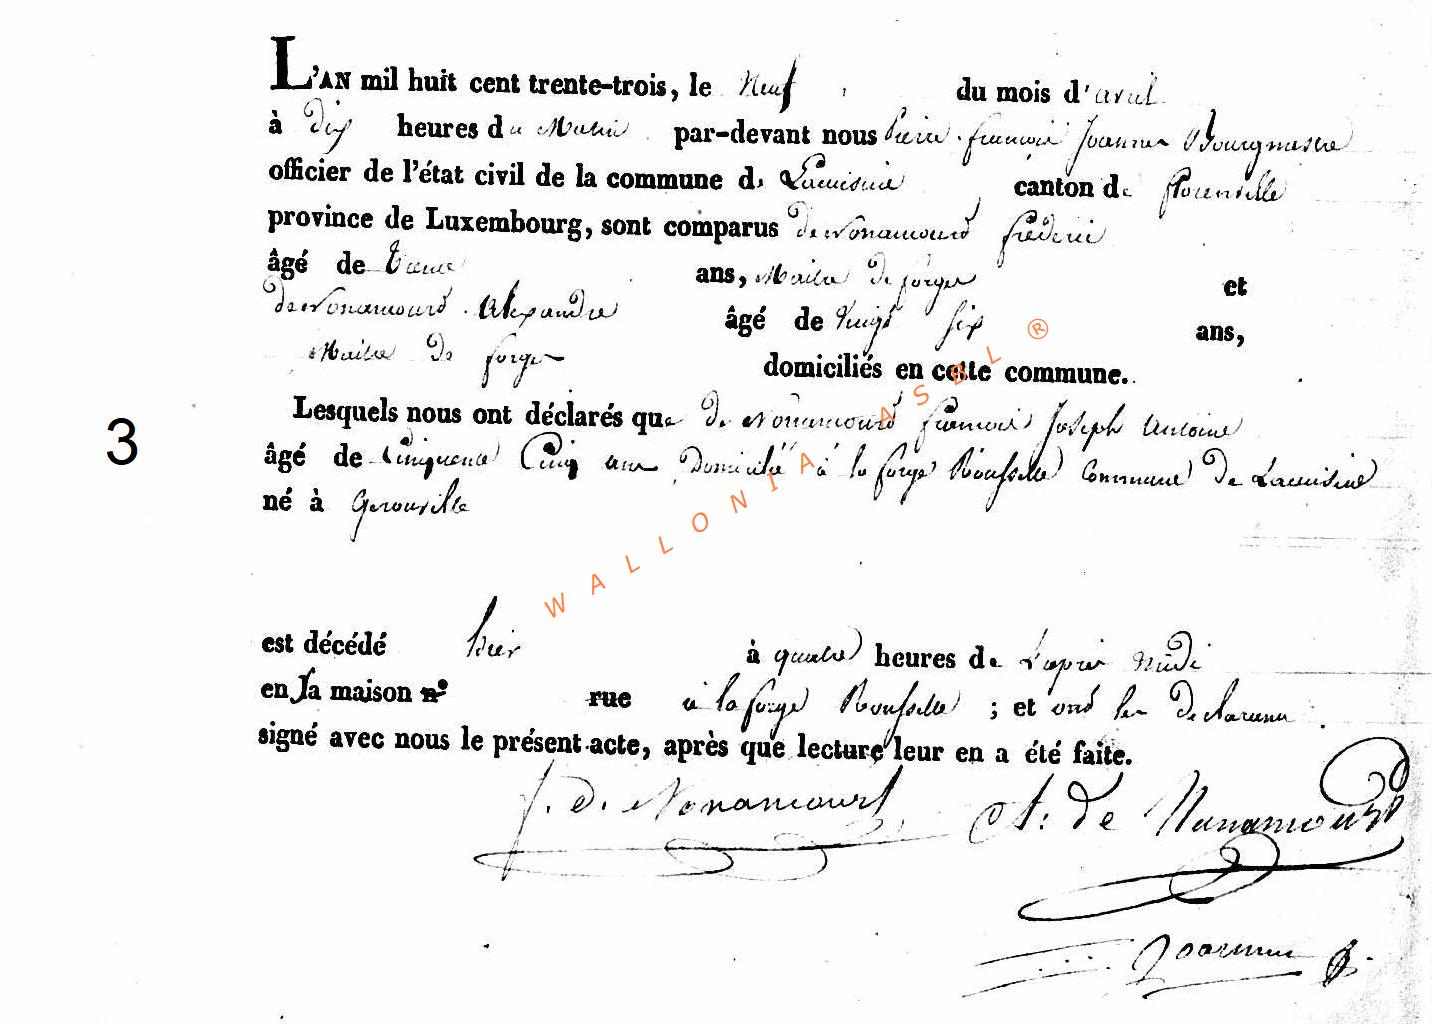 L'AN mil huit cent trente-trois, le Neuf du mois d'avril
à dix heures du Matin par-devant nous Pierre françois Joannes Bourgmestre
officier de l'état civil de la commune de Lacuisine canton de florenville
province de Luxembourg, sont comparus de Nonancourt fréderic
âgé de trente ans, Maitre de forges et
de Nonancourt Alexandre âgé de vingt six ans,
Maitre de forges domiciliés en cette commune.
Lesquels nous ont déclarés que de Nonancourt francois Joseph Antoine
âgé de Cinquente Cinq ans Domicilié à la forge Rousselle Commune de Lacuisine
né à Gerouville
3
est décédé hier à quatre heures de L'après midi
en sa maison nº rue à la forge Rousselle ; et ont les declarans
signé avec nous le présent acte, après que lecture leur en a été faite.
f. de Nonancourt A: de Nonancourt
Joannes
WALLONIA ASBL ®